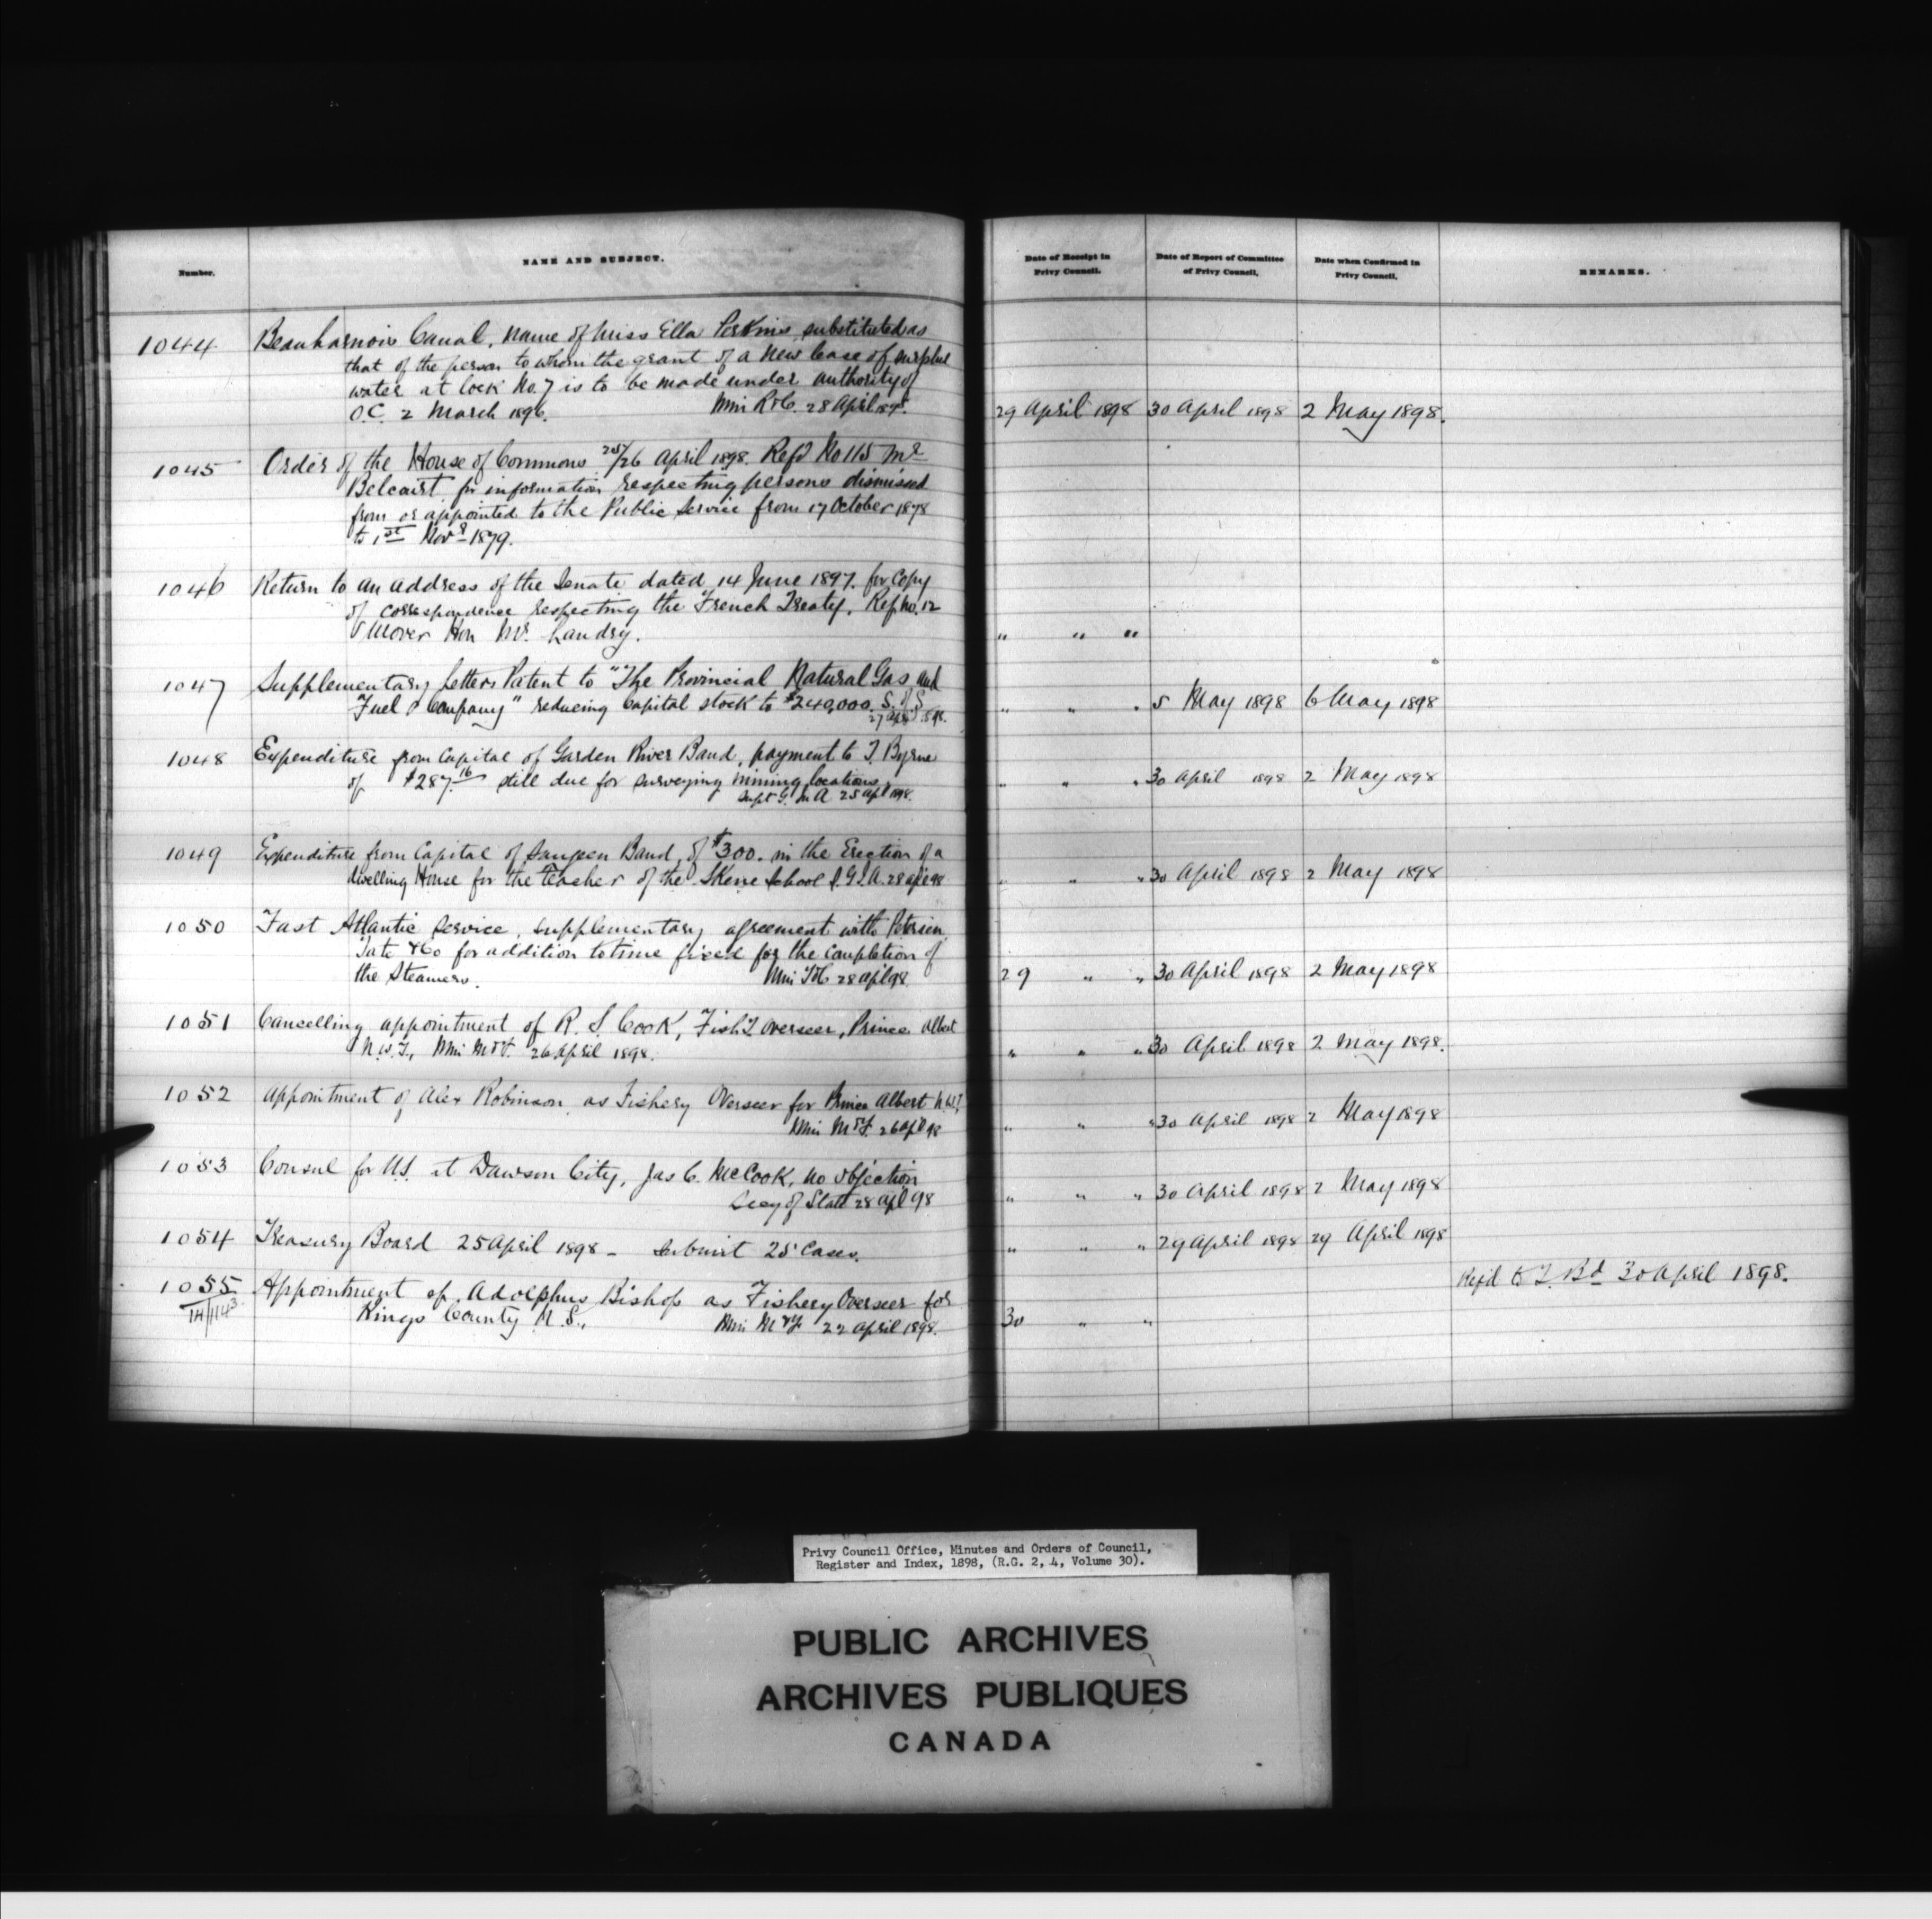 Number.
NAME AND SUBJECT.
Date of Receipt in
Privy Council.
Date of Report of Committee
of Privy Council.
Date when Confirmed in
Privy Council.
REMARKS.
1044 Beauharnois Canal, name of Miss Ella Perkins substituted as
that of the person to whom the grant of a new lease of surplus
water at lock No. 7 is to be made under authority of
O.C. 2 March 1896. Min R&C. 28 April 1898. 29 April 1898 30 April 1898 2 May 1898.
1045 Order of the House of Commons 25/26 April 1898. Refd No 115 Mr
Belcourt for information respecting persons dismissed
from or appointed to the Public Service from 17 October 1878
to 1st Novr 1879.
1046 Return to an address of the Senate dated 14 June 1897. for Copy
of correspondence respecting the French Treaty. Ref. No. 12
Mover Hon Mr. Landry. " " "
1047 Supplementary Letters Patent to "The Provincial Natural Gas and
Fuel Company" reducing Capital stock to $240,000. S. of S. " " " 5 May 1898 6 May 1898
27 April 1898.
1048 Expenditure from Capital of Garden River Band, payment to T. Byrne
of $287.16 still due for surveying mining locations, " " " 30 April 1898 2 May 1898
Supt G. In A 25 apl 1898.
1049 Expenditure from Capital of Saugeen Band, of $300. in the Erection of a
dwelling House for the teacher of the Skene School S.G.I.A. 28 apl 98 " " " 30 April 1898 2 May 1898
1050 Fast Atlantic Service, supplementary agreement with Petersen
Tate & Co for addition to time fixed for the completion of
the Steamers. Min T&C 28 apl 98 29 " " 30 April 1898 2 May 1898
1051 Cancelling appointment of R. S. Cook, Fish'y Overseer, Prince Albert
N.W.T., Min M&F. 26 April 1898. " " " 30 April 1898 2 May 1898.
1052 Appointment of Alex Robinson as Fishery Overseer for Prince Albert N.W.T.
Min M&F. 26 apl 98 " " " 30 April 1898 2 May 1898
1053 Consul for U.S. at Dawson City, Jas C. McCook, no objection
Secy of State 28 apl 98 " " " 30 April 1898 2 May 1898
1054 Treasury Board 25 April 1898 - Submit 25 Cases. " " " 29 April 1898 29 April 1898
1055 Appointment of Adolphus Bishop as Fishery Overseer for Refd to T. Bd 30 April 1898.
Kings County N.S., Min M&F 22 April 1898. 30 " "
Privy Council Office, Minutes and Orders of Council,
Register and Index, 1898, (R.G. 2, 4, Volume 30).
PUBLIC ARCHIVES
ARCHIVES PUBLIQUES
CANADA